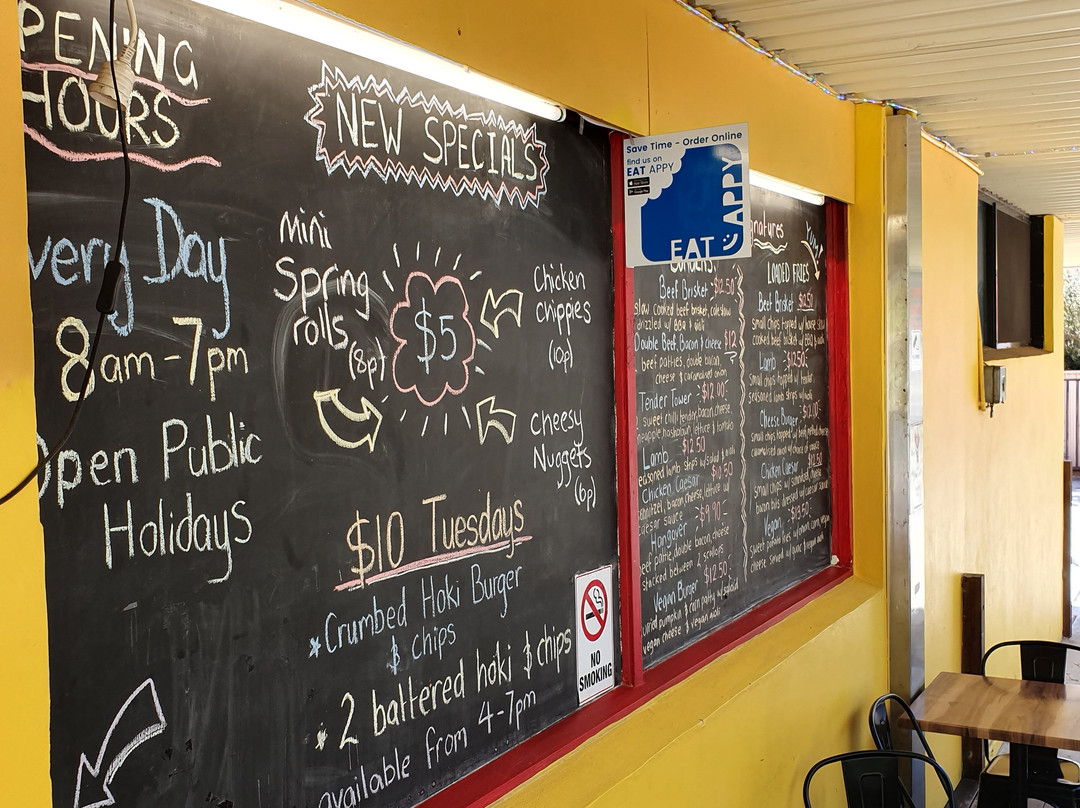 PENING
HOURS
very Day
8am-7pm
Open Public
Holidays
NEW SPECIALS
mini
Spring
rolls
(8p)
$5
Chicken
chippies
(10p)
cheesy
Nuggets
(6p)
$10 Tuesdays
*Crumbed Hoki Burger
& chips
* 2 battered hoki & chips
available from 4-7pm
NO
SMOKING
Save Time - Order Online
find us on
EAT APPY
EAT APPY
Beef Brisket - $12.50
slow cooked beef brisket, coleslaw
drizzled w/ BBQ & aioli
Double Beef, Bacon & cheese $12
beef patties, double bacon,
cheese & caramelised onion
Tender Tower - $12.00
2 sweet chilli tender, bacon, cheese,
pineapple, hashbrown, lettuce & tomato
Lamb - $12.50
seasoned lamb strips w/ salad &
Chicken Caesar $10.50
schnitzel, bacon, cheese, lettuce w/
caesar sauce
Hangover - $9.90
beef pattie, double bacon, cheese
stacked between 2 scallops
Vegan Burger $12.50
curried pumpkin & corn patty w/ salad
vegan cheese & vegan aioli
gnatures
YUM!
LOADED FRIES
Beef Brisket $12.50
small chips topped w/ house slow
cooked beef brisket w/ BBQ &
Lamb - $12.50
small chips topped w/
seasoned lamb strips w/ aioli
Cheese Burger - $12.00
small chips topped w/ beef, melted cheese
caramelised onion
Chicken Caesar
small chips w/ schnitzel, cheese,
bacon bits dressed w/ caesar sauce
Vegan - $13.50
sweet potato fries w/ onion, corn, vegan
cheese served w/